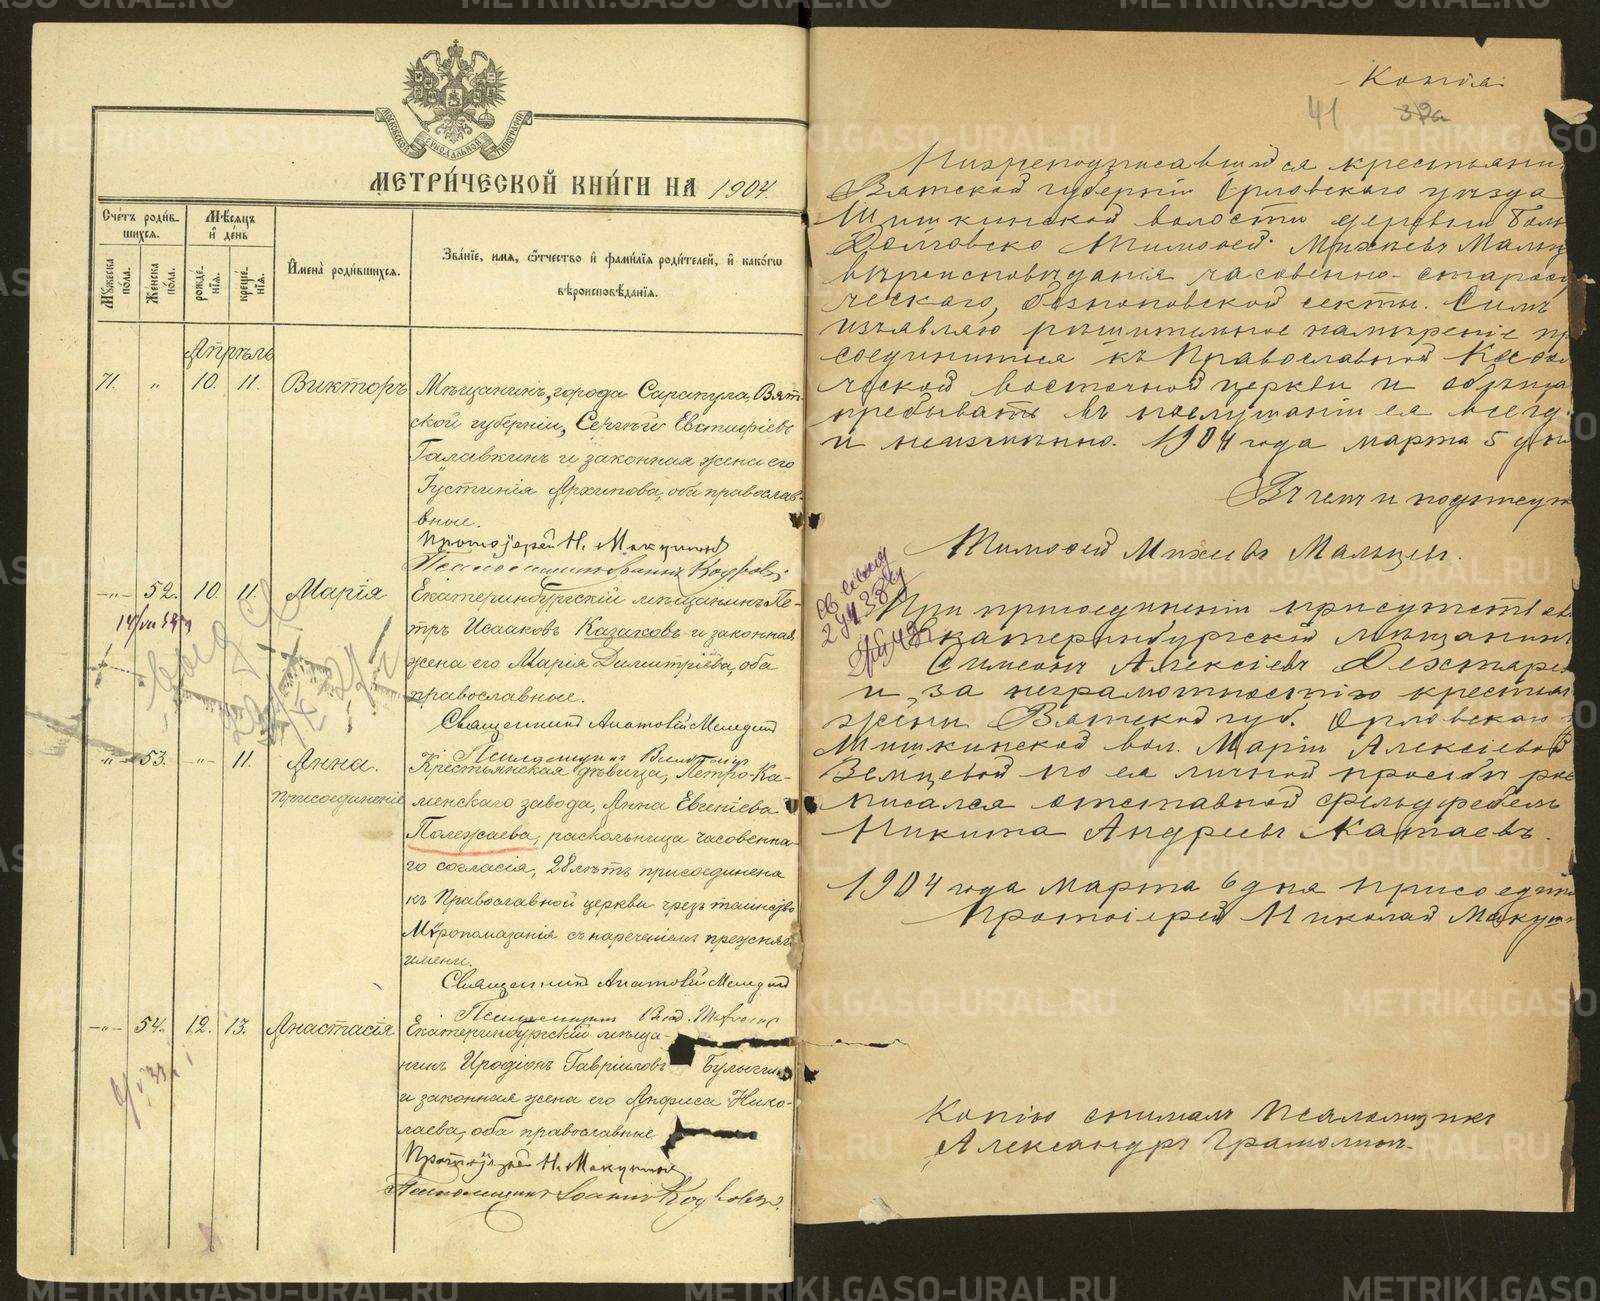 МОСКОВСКОЙ СѴНОДАЛЬНОЙ ТИПОГРАФІИ
МЕТРИ́ЧЕСКОЙ КНИ́ГИ НА 1904.
Сче́тъ роди́в-
шихся.
Мѣ́сяцъ
и҆ де́нь
И҆мена̀ роди́вшихся.
Зва́нїе, имя, ѻ҆́тчество и҆ фами́лїя роди́телей, и҆ како́гѡ
вѣроисповѣ́данїя.
Мꙋ́жеска по́ла.
Же́нска по́ла.
рожде́-
нїя.
креще́-
нїя.
Апрѣль
71. " 10. 11. Викторъ Мѣщанинъ, города Сарапула, Вят-
ской губерніи, Сергѣй Евстифіевъ
Галавкинъ и законная жена его
Іустинія Архипова, оба православ-
вные.
Протоіерей Н. Макушинъ
Псаломщикъ Іоаннъ
-"- 52. 10. 11. Марія Екатеринбургскій мѣщанинъ Пе-
тръ Исааковъ Казаковъ и законная
жена его Марія Димитріева, оба
православные.
Священникъ Анатолій
Псаломщикъ
-"- 53. -"- 11. Анна. Крестьянская дѣвица, Петро-Ка-
присоединеніе менскаго завода, Анна Евгеніева
Полежаева, раскольница часовенна-
го согласія, 28 лѣтъ присоединена
къ Православной церкви чрезъ таинство
Мѵропомазанія съ нареченіемъ прежняго
имени.
Священникъ Анатолій
Псаломщикъ Влад.
-"- 54. 12. 13. Анастасія Екатеринбургскій мѣща-
нинъ Иродіонъ Гавріиловъ Булыгинъ
и законная жена его Анфиса Нико-
лаева, оба православные
Протоіерей Н. Макушинъ
Псаломщикъ Іоаннъ
Копія.
41 39а
Нижеподписавшійся крестьянин
Вятской губерніи Орловскаго уѣзда
Шишкинской волости деревни Боль
Долговско Тимофей Михеевъ Мальц
вѣроисповѣданія часовенно-старооб
ческаго, безпоповской секты. Симъ
изъявляю рѣшительное намѣреніе пр
соединится къ Православной Каѳол
ческой восточной церкви и обѣща
пребывать въ послушаніи ея всегд
и неизмѣнно. 1904 года марта 5 дня
Въ чемъ и подписую
Тимофей Михеевъ Мальцевъ.
При присоединеніи присутств
Екатеринбургскій мѣщанинъ
Симеонъ Алексіевъ Дехтаре
и, за неграмотностію крестьян
жены Вятской губ. Орловскаго у
Шишкинской вол. Маріи Алексіевой
Земцевой по ея личной просьбѣ рос
писался отставной фельдфебель
Никита Андреевъ Катаевъ.
1904 года марта 6 дня присоедин
Протоіерей Николай Макуш
Копію снималъ Псаломщикъ
Александръ Грамолинъ.
METRIKI.GASO-URAL.RU